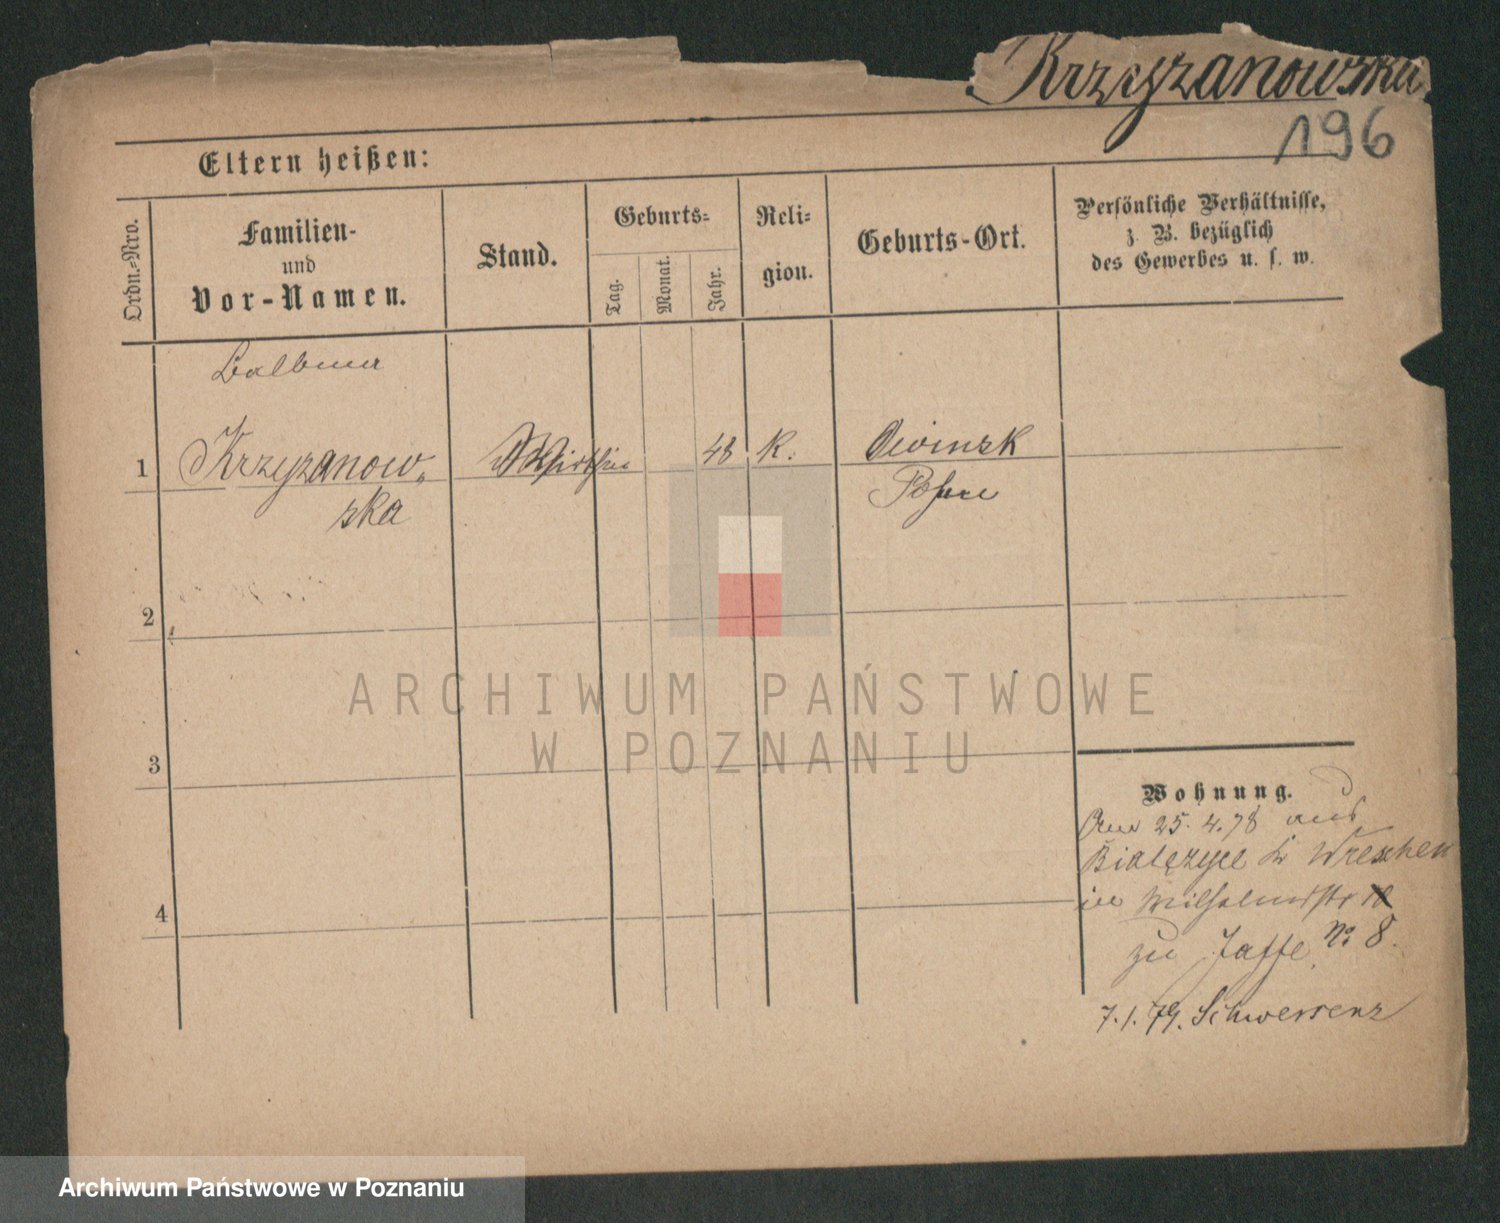 Krzyzanowska
196
Eltern heißen:
Ordn.-Nro.
Familien-
und
Vor-Namen.
Stand.
Geburts-
Tag.
Monat.
Jahr.
Reli-
gion.
Geburts-Ort.
Persönliche Verhältnisse,
z. B. bezüglich
des Gewerbes u. s. w.
Balbina
1 Krzyzanow- Wirthin 48 K.
ska
Posen
2
3
4
ARCHIWUM PAŃSTWOWE
W POZNANIU
Wohnung.
25. 4. 78 aus
Białężyce Kr Wreschen
in Wilhelmstr
zu Jaffe No 8.
7. 1. 79. Schwersenz
Archiwum Państwowe w Poznaniu